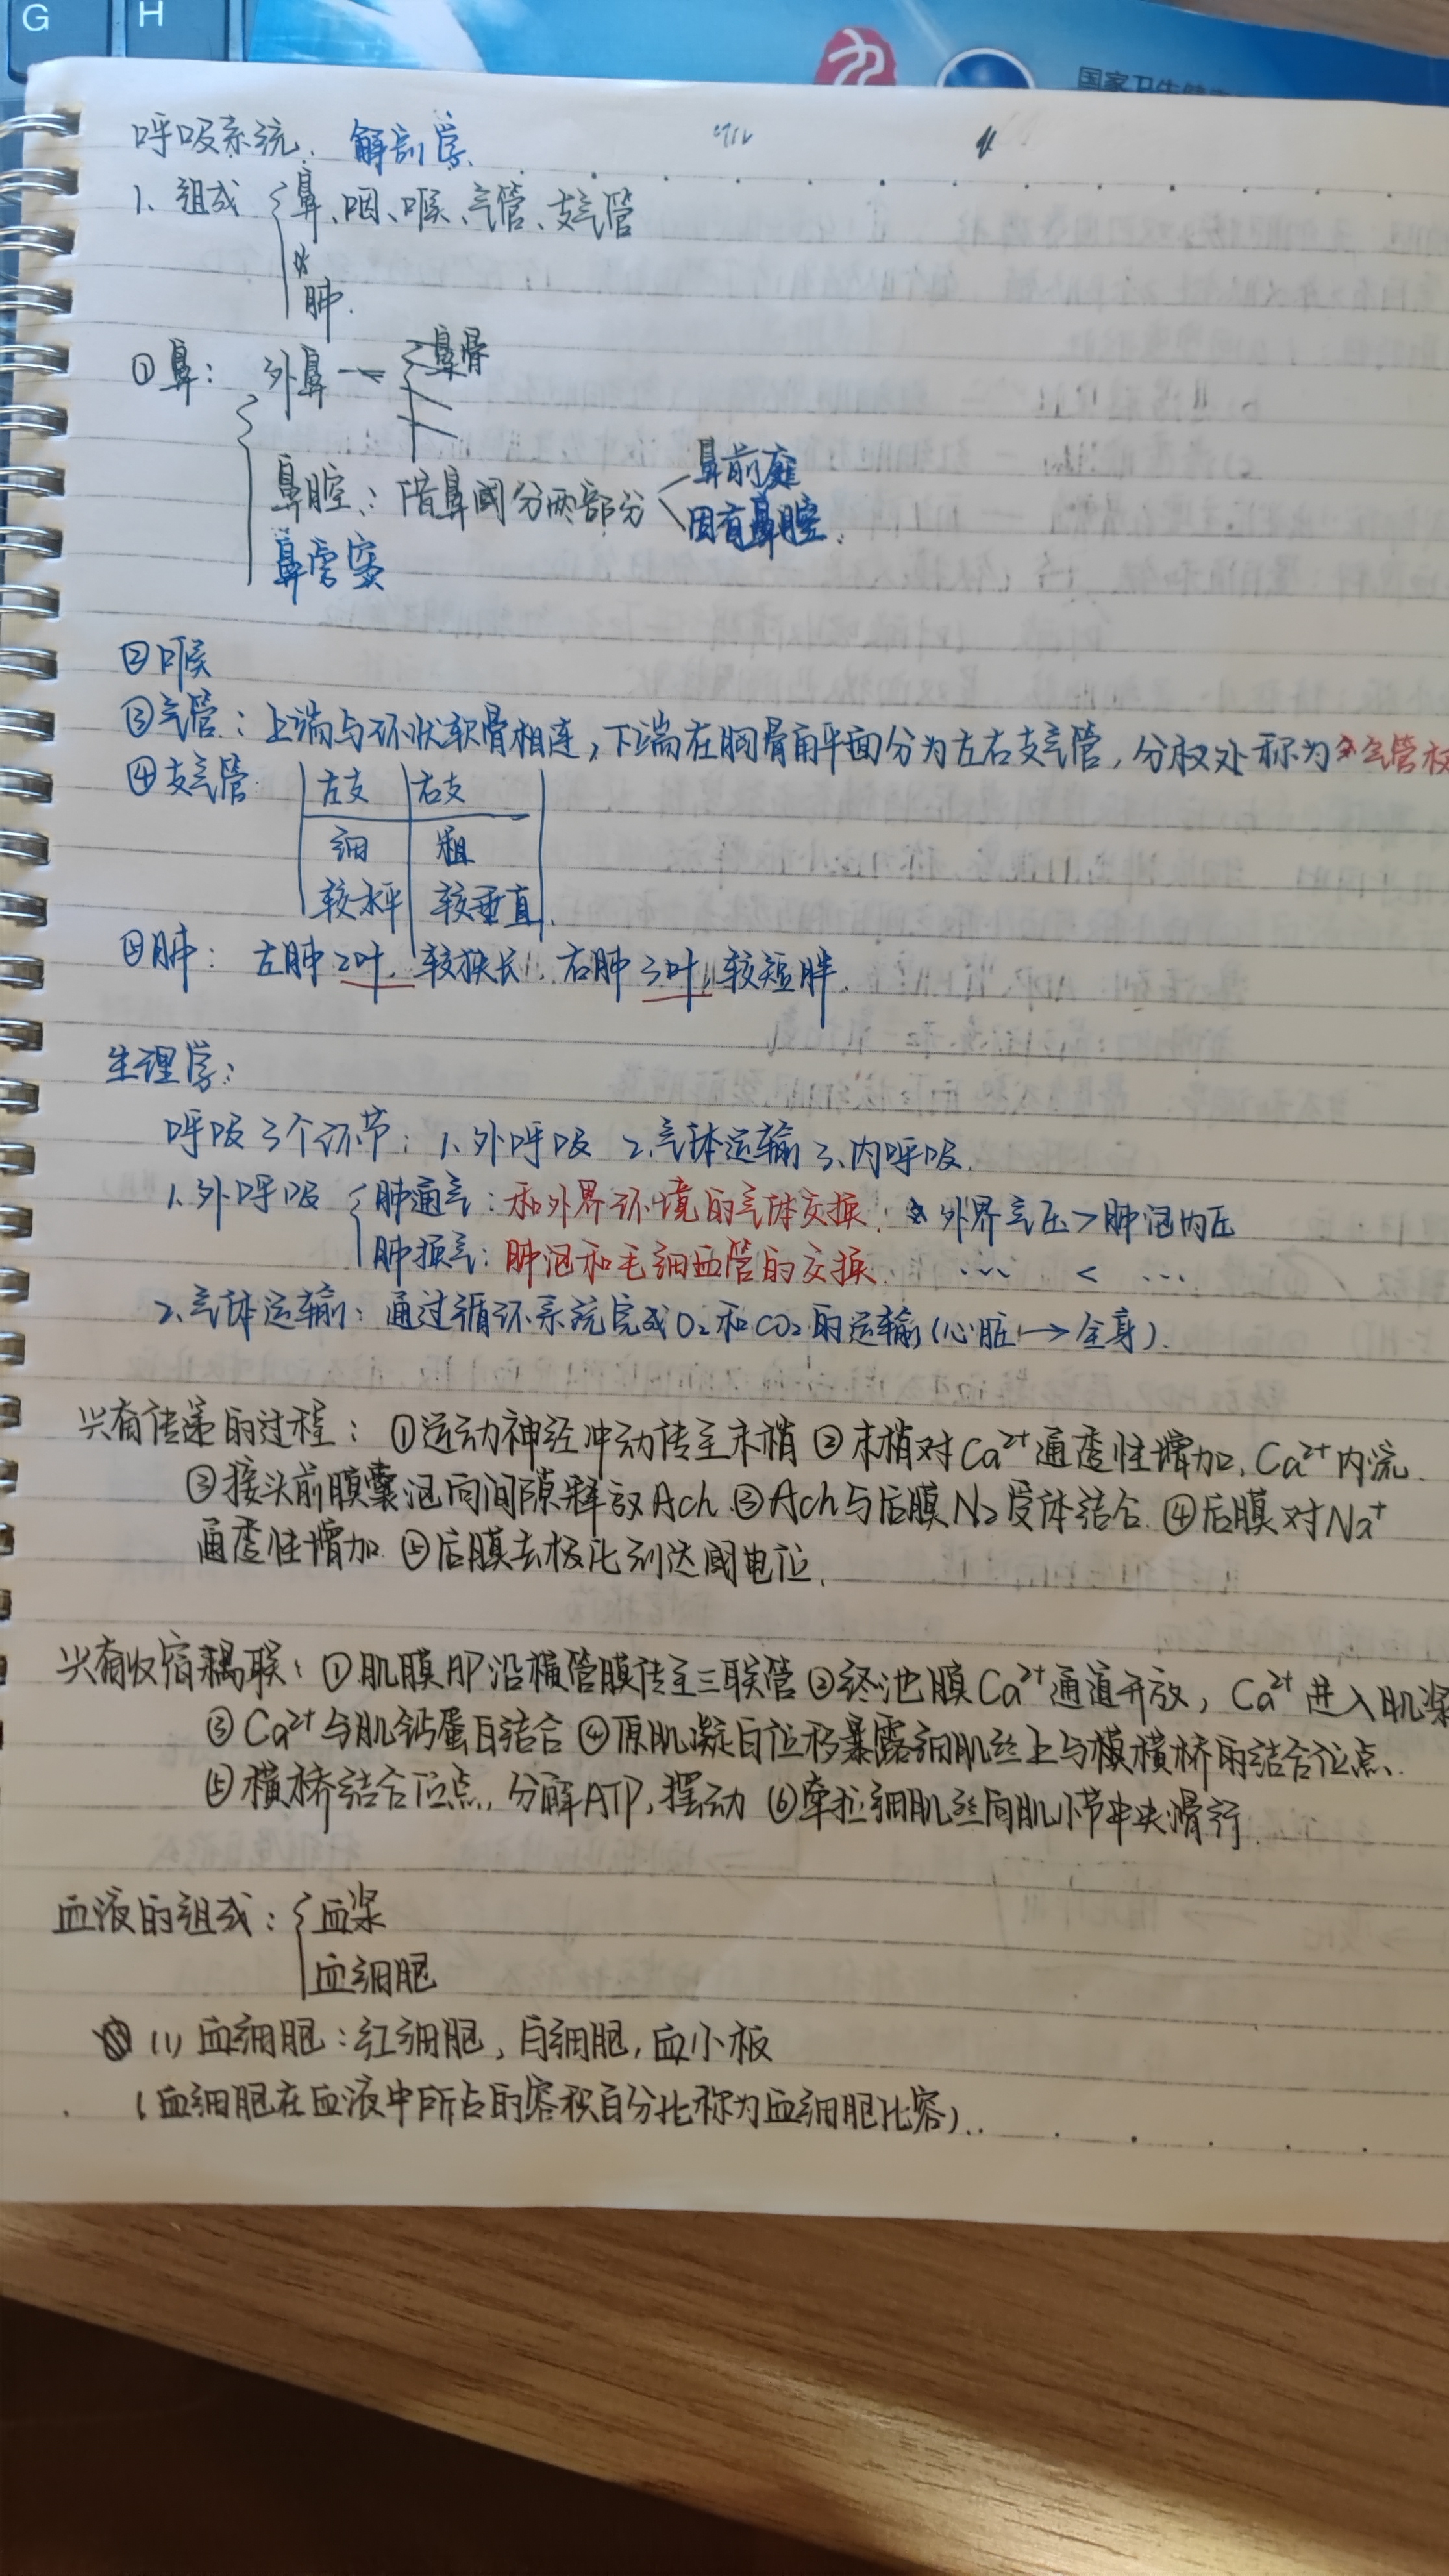 G H
国家卫生健康
呼吸系统. 解剖学.
1、组成 鼻、咽、喉、气管、支气管
肺.
①鼻: 外鼻 鼻骨
鼻腔: 借鼻阈分两部分 鼻前庭
固有鼻腔.
鼻旁窦
②喉
③气管: 上端与环状软骨相连, 下端在胸骨角平面分为左右支气管, 分杈处称为气管杈
④支气管 左支 右支
细 粗
较水平 较垂直.
⑤肺: 左肺2叶. 较狭长. 右肺3叶, 较短胖.
生理学:
呼吸3个环节: 1.外呼吸 2.气体运输 3.内呼吸.
1.外呼吸 肺通气: 和外界环境的气体交换. 外界气压>肺泡内压
肺换气: 肺泡和毛细血管的交换. ... < ...
2.气体运输: 通过循环系统完成O₂和CO₂的运输(心脏→全身).
兴奋传递的过程: ①运动神经冲动传至末梢 ②末梢对Ca²⁺通透性增加, Ca²⁺内流.
③接头前膜囊泡向间隙释放Ach. ③Ach与后膜N₂受体结合. ④后膜对Na⁺
通透性增加 ⑤后膜去极化到达阈电位.
兴奋收缩耦联: ①肌膜AP沿横管膜传至三联管 ②终池膜Ca²⁺通道开放, Ca²⁺进入肌浆
③Ca²⁺与肌钙蛋白结合 ④原肌凝白位移暴露细肌丝上与横桥的结合位点.
⑤横桥结合位点, 分解ATP, 摆动 ⑥牵拉细肌丝向肌小节中央滑行.
血液的组成: 血浆
血细胞
(1) 血细胞: 红细胞, 白细胞, 血小板
(血细胞在血液中所占的容积百分比称为血细胞比容)..